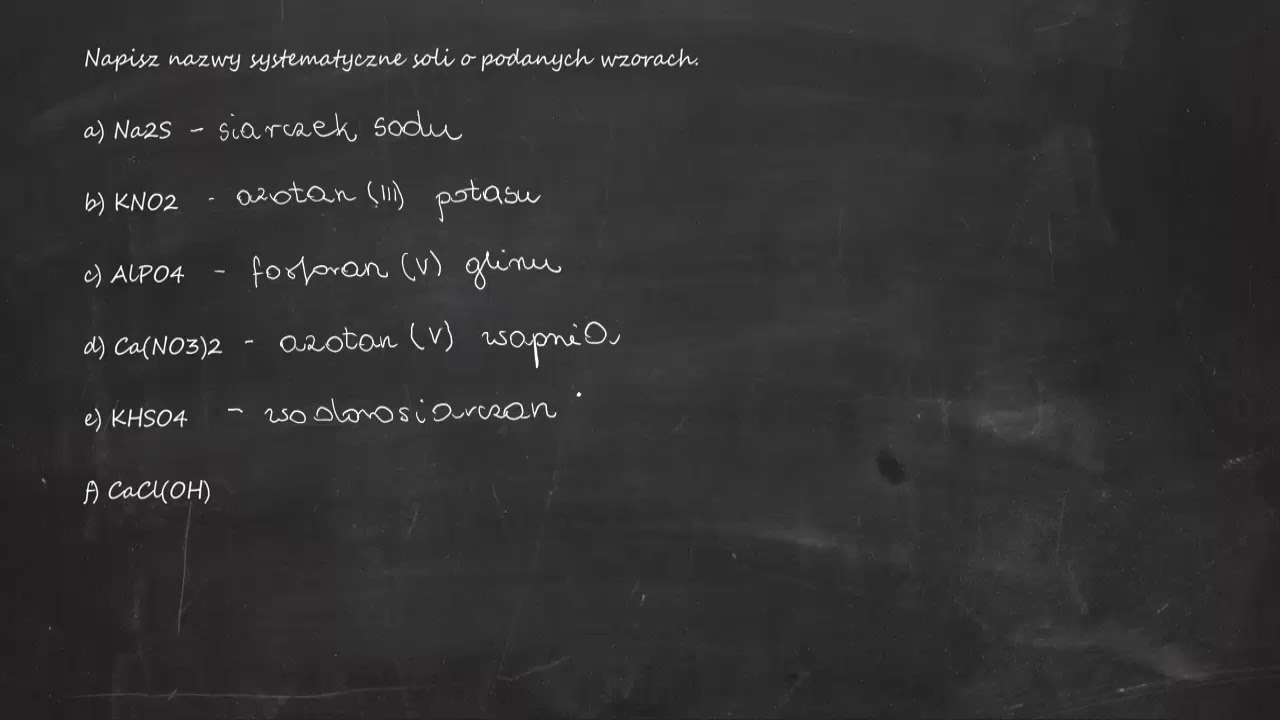 Napisz nazwy systematyczne soli o podanych wzorach.
a) Na2S - siarczek sodu
b) KNO2 - azotan (III) potasu
c) AlPO4 - fosforan (V) glinu
d) Ca(NO3)2 - azotan (V) wapnia
e) KHSO4 - wodorosiarczan
f) CaCl(OH)